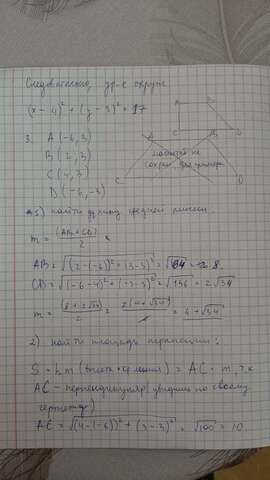 Следовательно, ур-е окруж
(x - 4)² + (y - 3)² = 17
3. A (-6, 3)
B (2, 3)
C (4, 3)
D (-6, -3)
A
C
A B
C D
1) найти длину средней линии.
m = (AB + CD) / 2
AB = √(2-(-6))² + (3-3)² = √64 = 8
CD = √(-6-4)² + (-3-3)² = √136 = 2√34
m = (8 + 2√34) / 2 = = 4 + √34
2) найти площадь трапеции.
S = h·m (высота · ср линия) = AC · m, т.к
AC - перпендикуляр (увидим по своему
чертежу)
AC = √(4-(-6))² + (3-3)² = √100 = 10